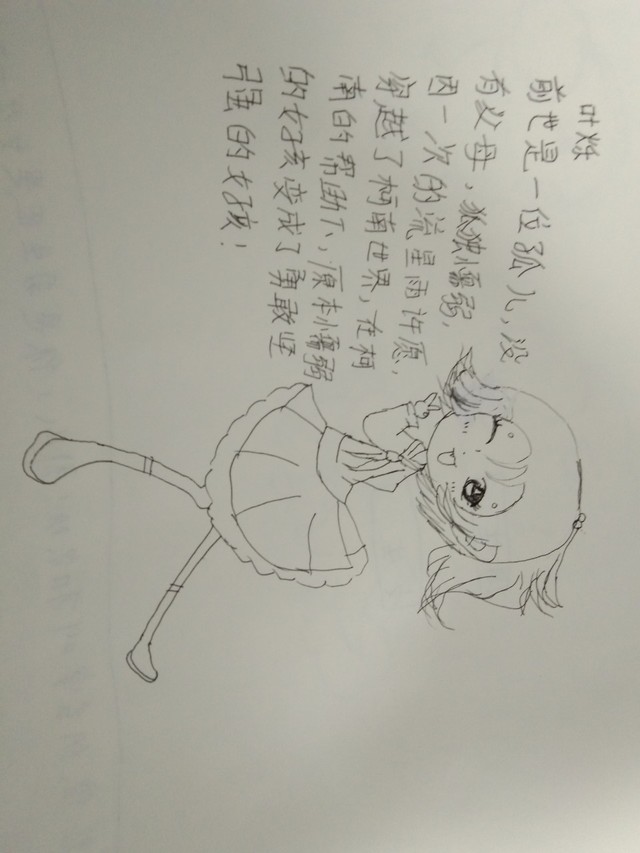 叶
前世是一位孤儿，没
有父母，狐独懦弱，
因一次的流星雨许愿，
穿越了柯南世界，在柯
南的帮助下，原本懦弱
的女孩变成了勇敢坚
强的女孩！